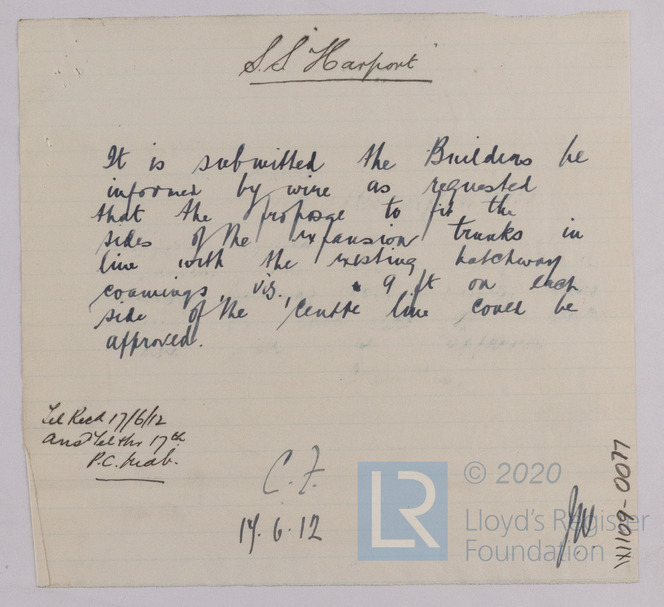 S.S "Harport"
It is submitted the Builders be
informed by wire as requested
that the propose to fit the
sides of the expansion trunks in
line with the existing hatchway
coamings, viz., 9 ft on each
side of the centre line could be
approved.
Tel Recd 17/6/12
Ansd Tel thr 17th
P.C.
C.F.
17.6.12
LR
© 2020
Lloyd's Register
Foundation
JW
W1109-0077